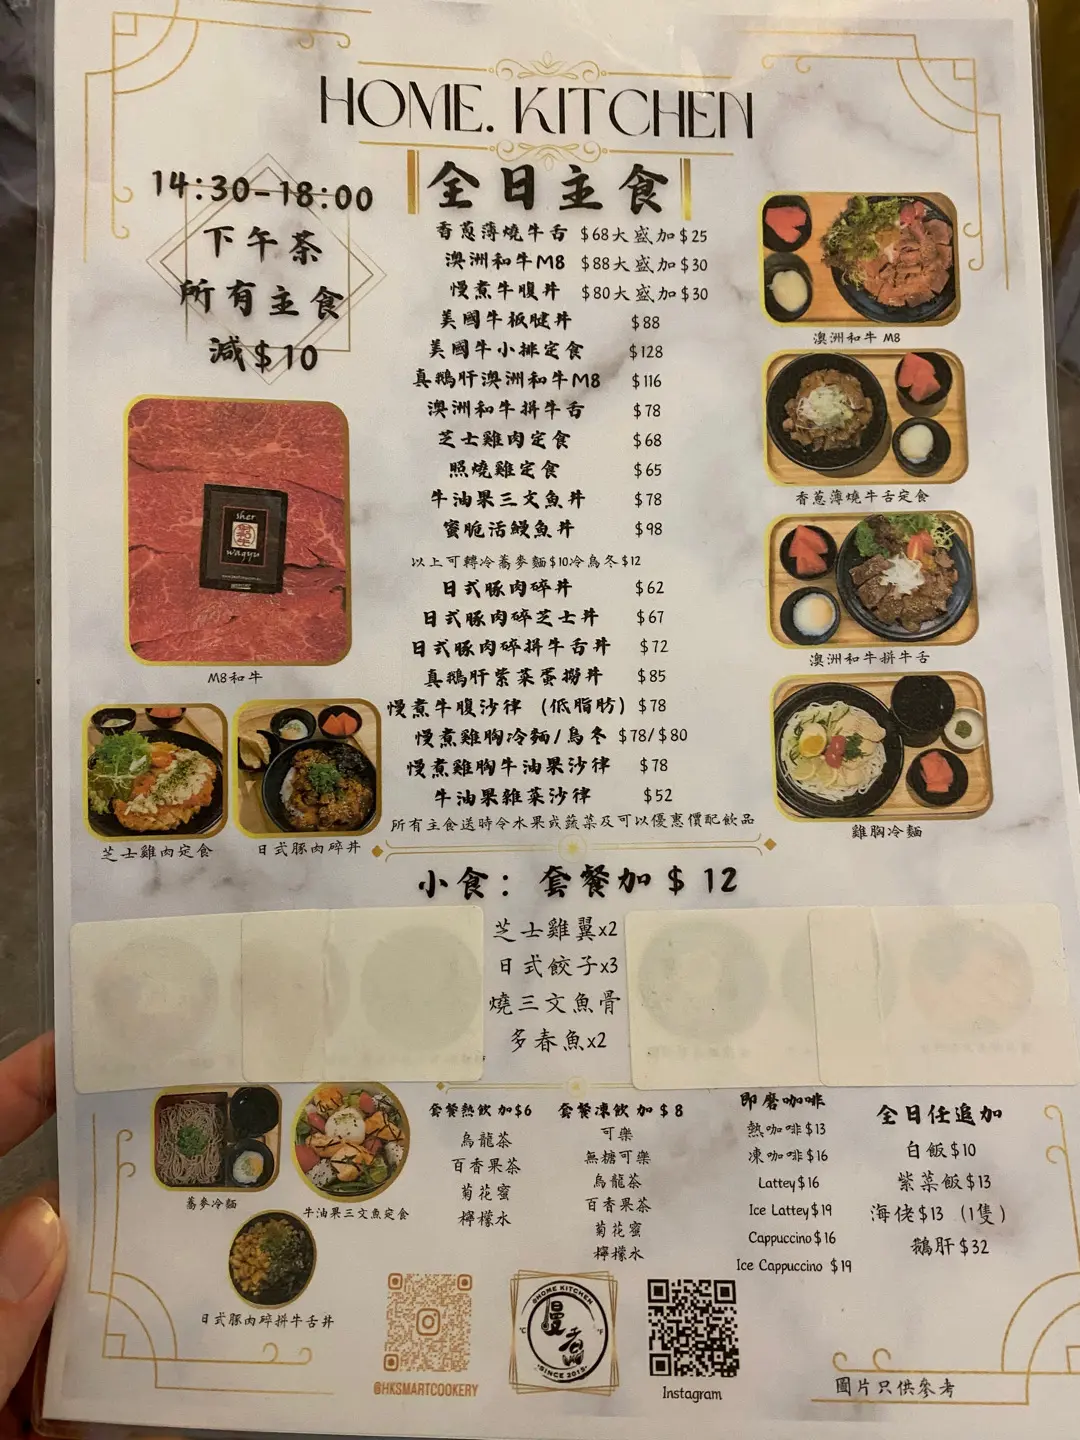 HOME. KITCHEN
14:30-18:00
下午茶
所有主食
減$10
全日主食
香蔥薄燒牛舌 $68大盛加$25
澳洲和牛M8 $88大盛加$30
慢煮牛腹丼 $80大盛加$30
美國牛板腱丼 $88
美國牛小排定食 $128
真鵝肝澳洲和牛M8 $116
澳洲和牛拼牛舌 $78
芝士雞肉定食 $68
照燒雞定食 $65
牛油果三文魚丼 $78
蜜脆活鰻魚丼 $98
以上可轉冷蕎麥麵$10冷烏冬$12
日式豚肉碎丼 $62
日式豚肉碎芝士丼 $67
日式豚肉碎拼牛舌丼 $72
真鵝肝紫菜蛋撈丼 $85
慢煮牛腹沙律 (低脂肪) $78
慢煮雞胸冷麵/烏冬 $78/$80
慢煮雞胸牛油果沙律 $78
牛油果雜菜沙律 $52
所有主食送時令水果或蔬菜及可以優惠價配飲品
sher
wagyu
M8和牛
芝士雞肉定食
日式豚肉碎丼
澳洲和牛 M8
香蔥薄燒牛舌定食
澳洲和牛拼牛舌
雞胸冷麵
小食：套餐加$12
芝士雞翼x2
日式餃子x3
燒三文魚骨
多春魚x2
蕎麥冷麵
牛油果三文魚定食
日式豚肉碎拼牛舌丼
套餐熱飲 加$6
烏龍茶
百香果茶
菊花蜜
檸檬水
套餐凍飲 加$8
可樂
無糖可樂
烏龍茶
百香果茶
菊花蜜
檸檬水
即磨咖啡
熱咖啡$13
凍咖啡$16
Lattey$16
Ice Lattey$19
Cappuccino$16
Ice Cappuccino $19
全日任追加
白飯$10
紫菜飯$13
海佬$13 (1隻)
鵝肝$32
@HKSMARTCOOKERY
@HOME KITCHEN
慢煮
SINCE 2015
Instagram
圖片只供參考